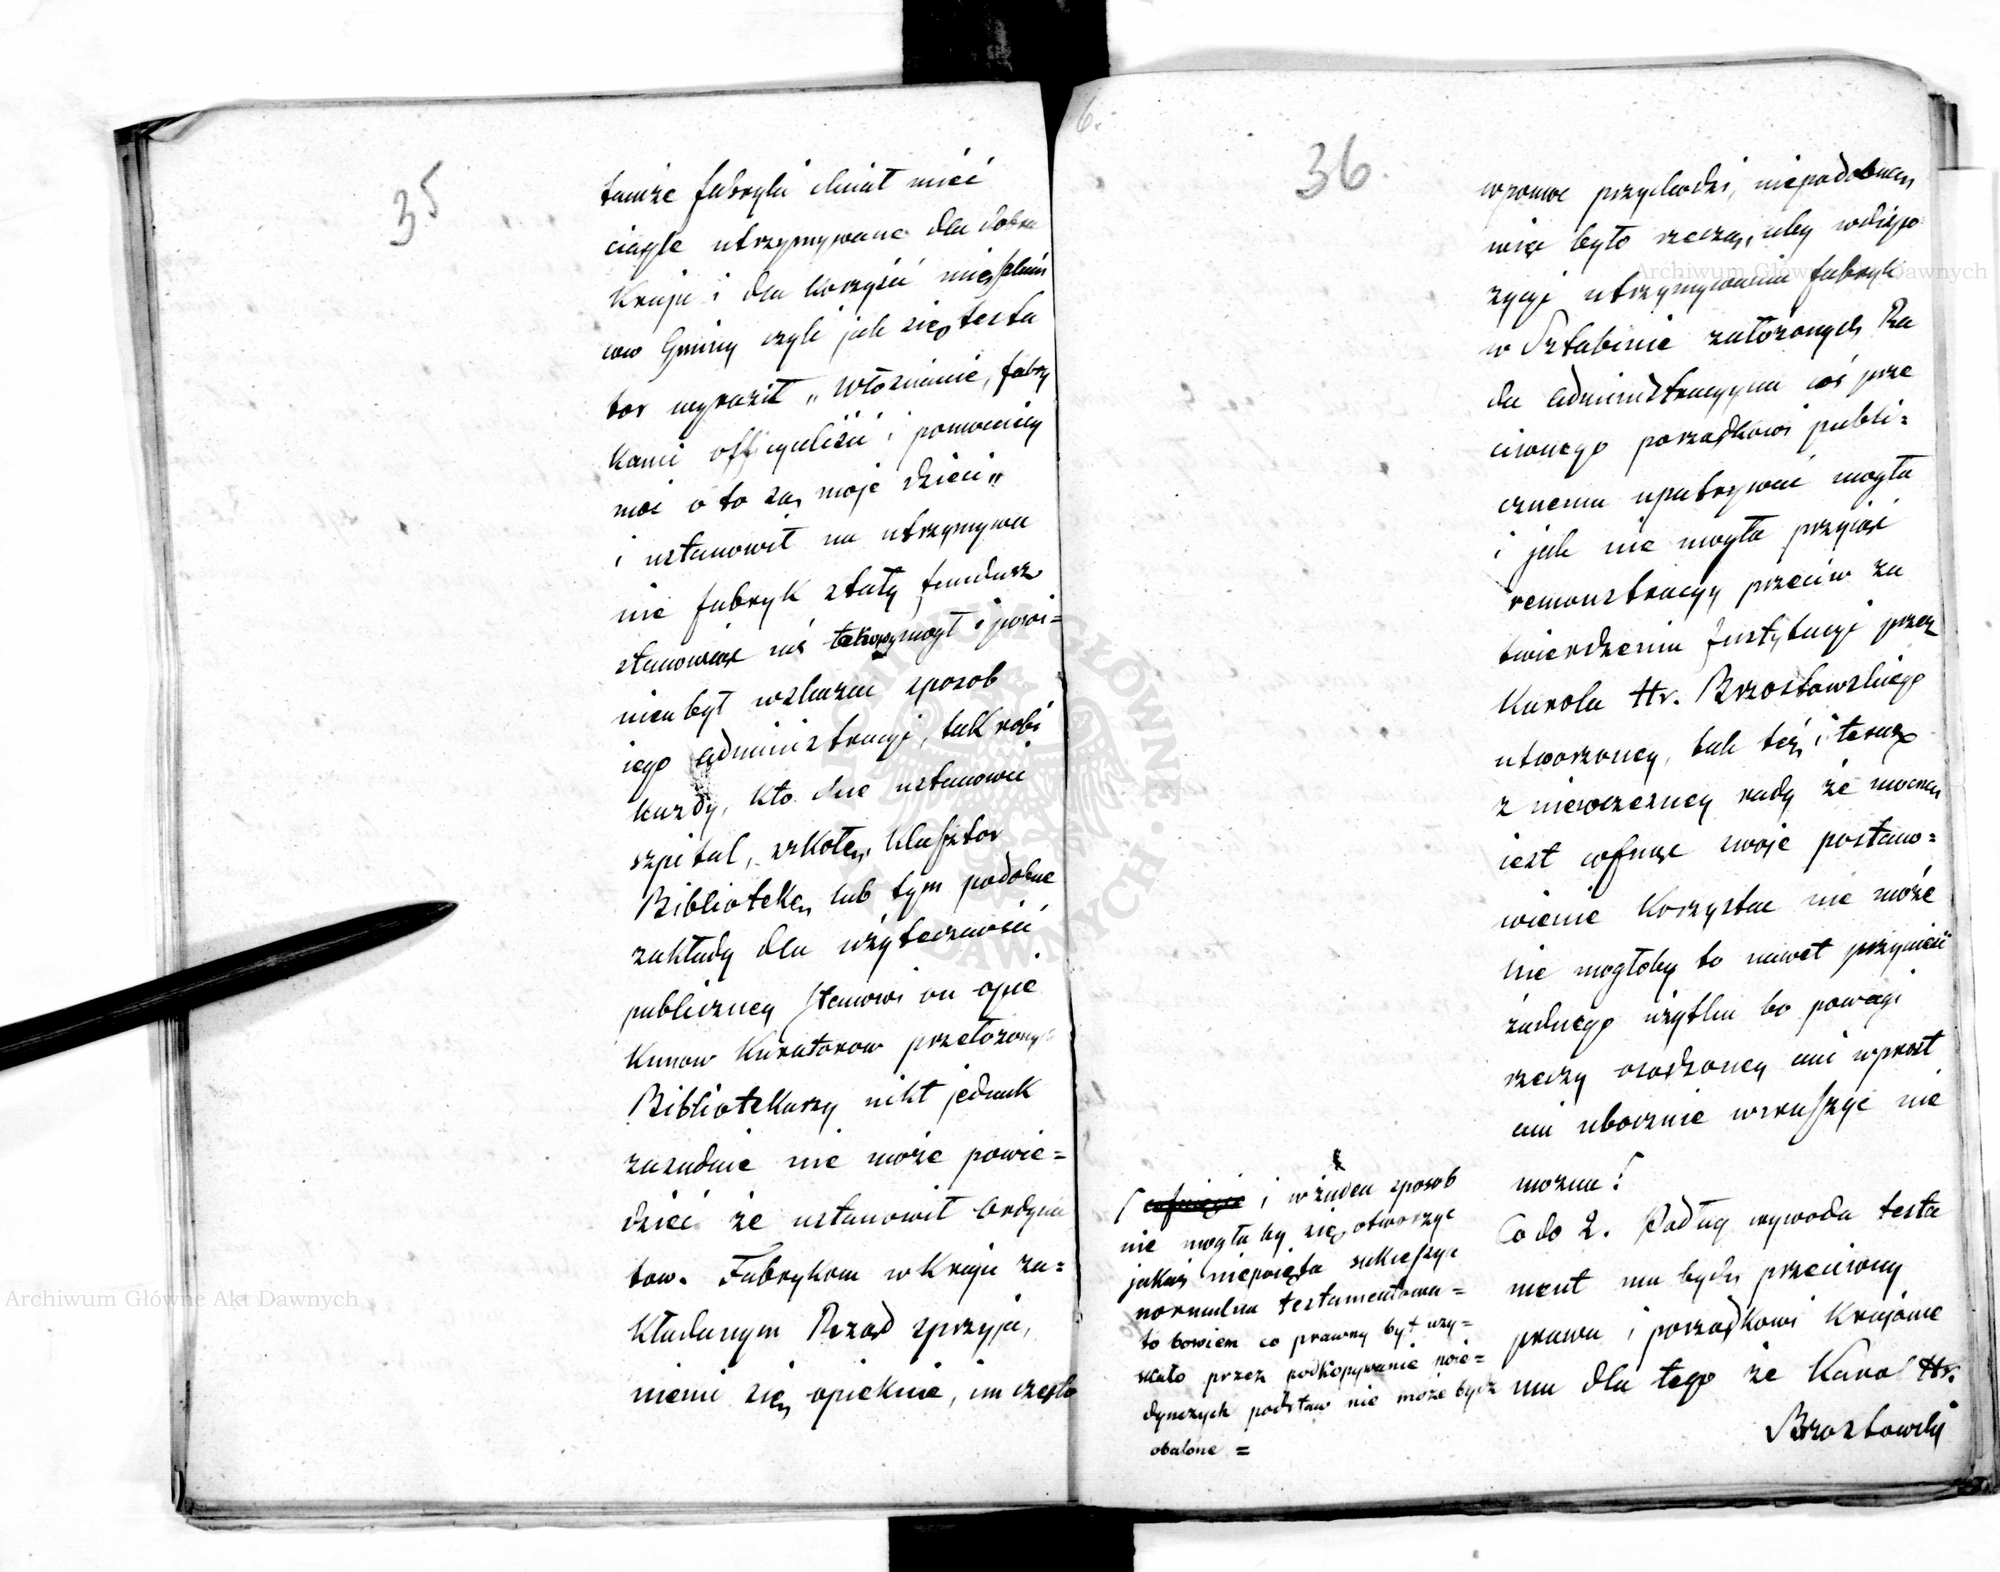 35
tamże fabryki chciał mieć
ciągle utrzymywane dla dobra
Kraju i dla korzyści mieszkań
ców Gminy czyli jak się testa
tor wyraził „Włościanie, fabry
kanci officyaliści i pomocnicy
moi oto są moje dzieci„
i ustanowił na utrzymywa
nie fabryk stały fundusz
stanowiąc zaś mógł i powi=
nien był wskazać sposob
iego administracyi, tak robi
każdy, kto chce ustanowić
szpital, szkołę, klasztor
Bibliotekę, lub tym podobne
zakłady dla użyteczności
publiczney stanowi on opie
kunow Kuratorow przełożonych
Bibliotekarzy nikt jednak
zasadnie nie może powie=
dzieć że ustanowił Ordyna
tow. Fabrykom w Kraju za=
kładanym Rząd sprzyja,
niemi się opiekuie, im często
6.
36.
w pomoc przychodzi, niepodobną
więc było rzeczą, aby w dispo
zycyi utrzymywania fabryk
w Sztabinie założonych Ra
da Administracyjna coś prze
ciwnego porządkowi publi=
cznemu upatrywać mogła
i jak nie mogła przyiąć
remonstracyy przeciw za
twierdzeniu Instytucyi przez
Karola Hr. Brzostowskiego
utworzoney, tak też i teraz
z niewczesney rady że mocną
iest cofnąć swoje postano=
wienie korzystać nie może
nie mogłoby to nawet przynieść
żadnego użytku bo powagi
rzeczy osądzoney ani wprost
ani ubocznie wzruszyć nie
można
Co do 2. Podług wywodu testa
ment ma bydź przeciwny
prawu i porządkowi Krajowe
mu dla tego że Karol Hr.
Brzostowski
i w żaden sposob
nie mogła by się otworzyć
jakaś niepoięta sukcessya
normalna testamentowa=
to bowiem co prawny byt uzy=
skało przez podkopywanie poie=
dynczych podstaw nie może bydz
obalone =
Archiwum Główne Akt Dawnych
Archiwum Główne Akt Dawnych
ARCHIWUM GŁÓWNE AKT DAWNYCH